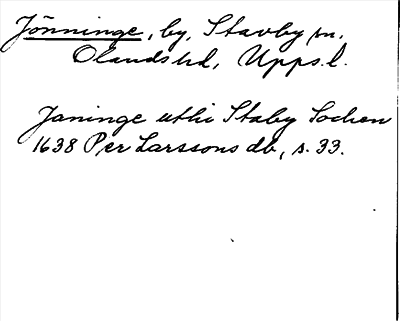 Jönninge, by, Stavby sn,
Olands hd, Upps. l.
Janinge uthi Staby Sochen
1638 Per Larssons db, s. 33.